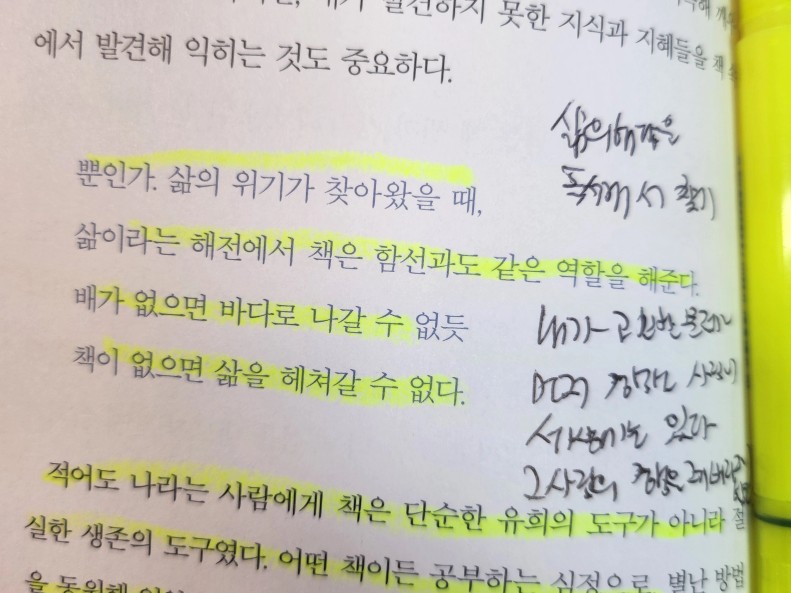 발견하지 못한 지식과 지혜들을 책
에서 발견해 익히는 것도 중요하다.
삶의 해답을
독서에서 찾기
뿐인가. 삶의 위기가 찾아왔을 때,
삶이라는 해전에서 책은 함선과도 같은 역할을 해준다.
배가 없으면 바다로 나갈 수 없듯
책이 없으면 삶을 헤쳐갈 수 없다.
내가 고민한 문제를
먼저 경험한 사람이
세상에는 있다
그 사람의 경험을
적어도 나라는 사람에게 책은 단순한 유희의 도구가 아니라 절
실한 생존의 도구였다. 어떤 책이든 공부하는 심정으로, 별난 방법
을 동원해